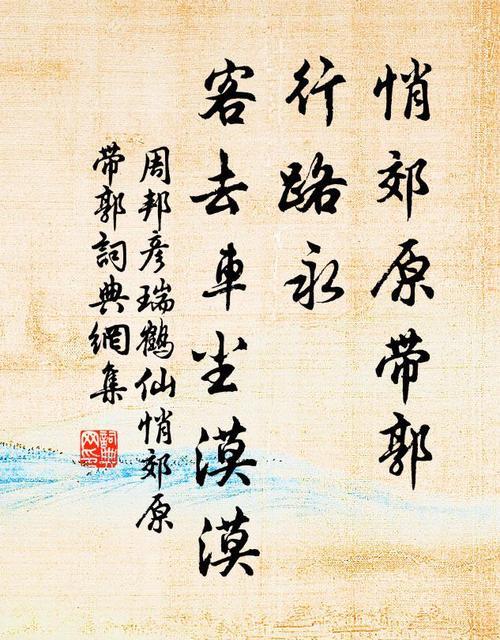 悄郊原带郭
行路永
客去車尘漠漠
周邦彦瑞鶴仙悄郊原
带郭詞典網集